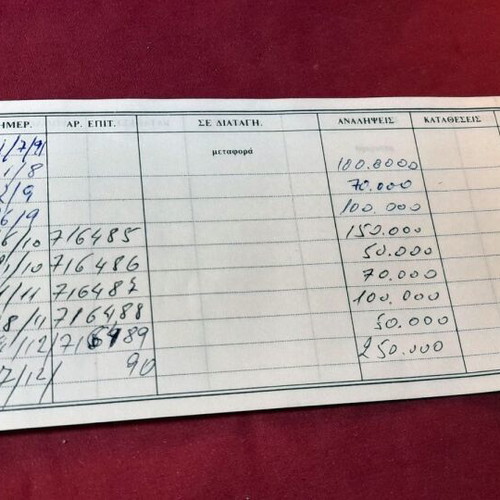 ΗΜΕΡ. ΑΡ. ΕΠΙΤ. ΣΕ ΔΙΑΤΑΓΗ. ΑΝΑΛΗΨΕΙΣ ΚΑΤΑΘΕΣΕΙΣ
μεταφορά
1/7/91 100.0000
1/8 70.000
2/9 100.000
6/9 150.000
6/10 716485 50.000
/10 716486 70.000
/11 716487 100.000
8/11 716488 50.000
/12/ 716489 250.000
7/12/ 90